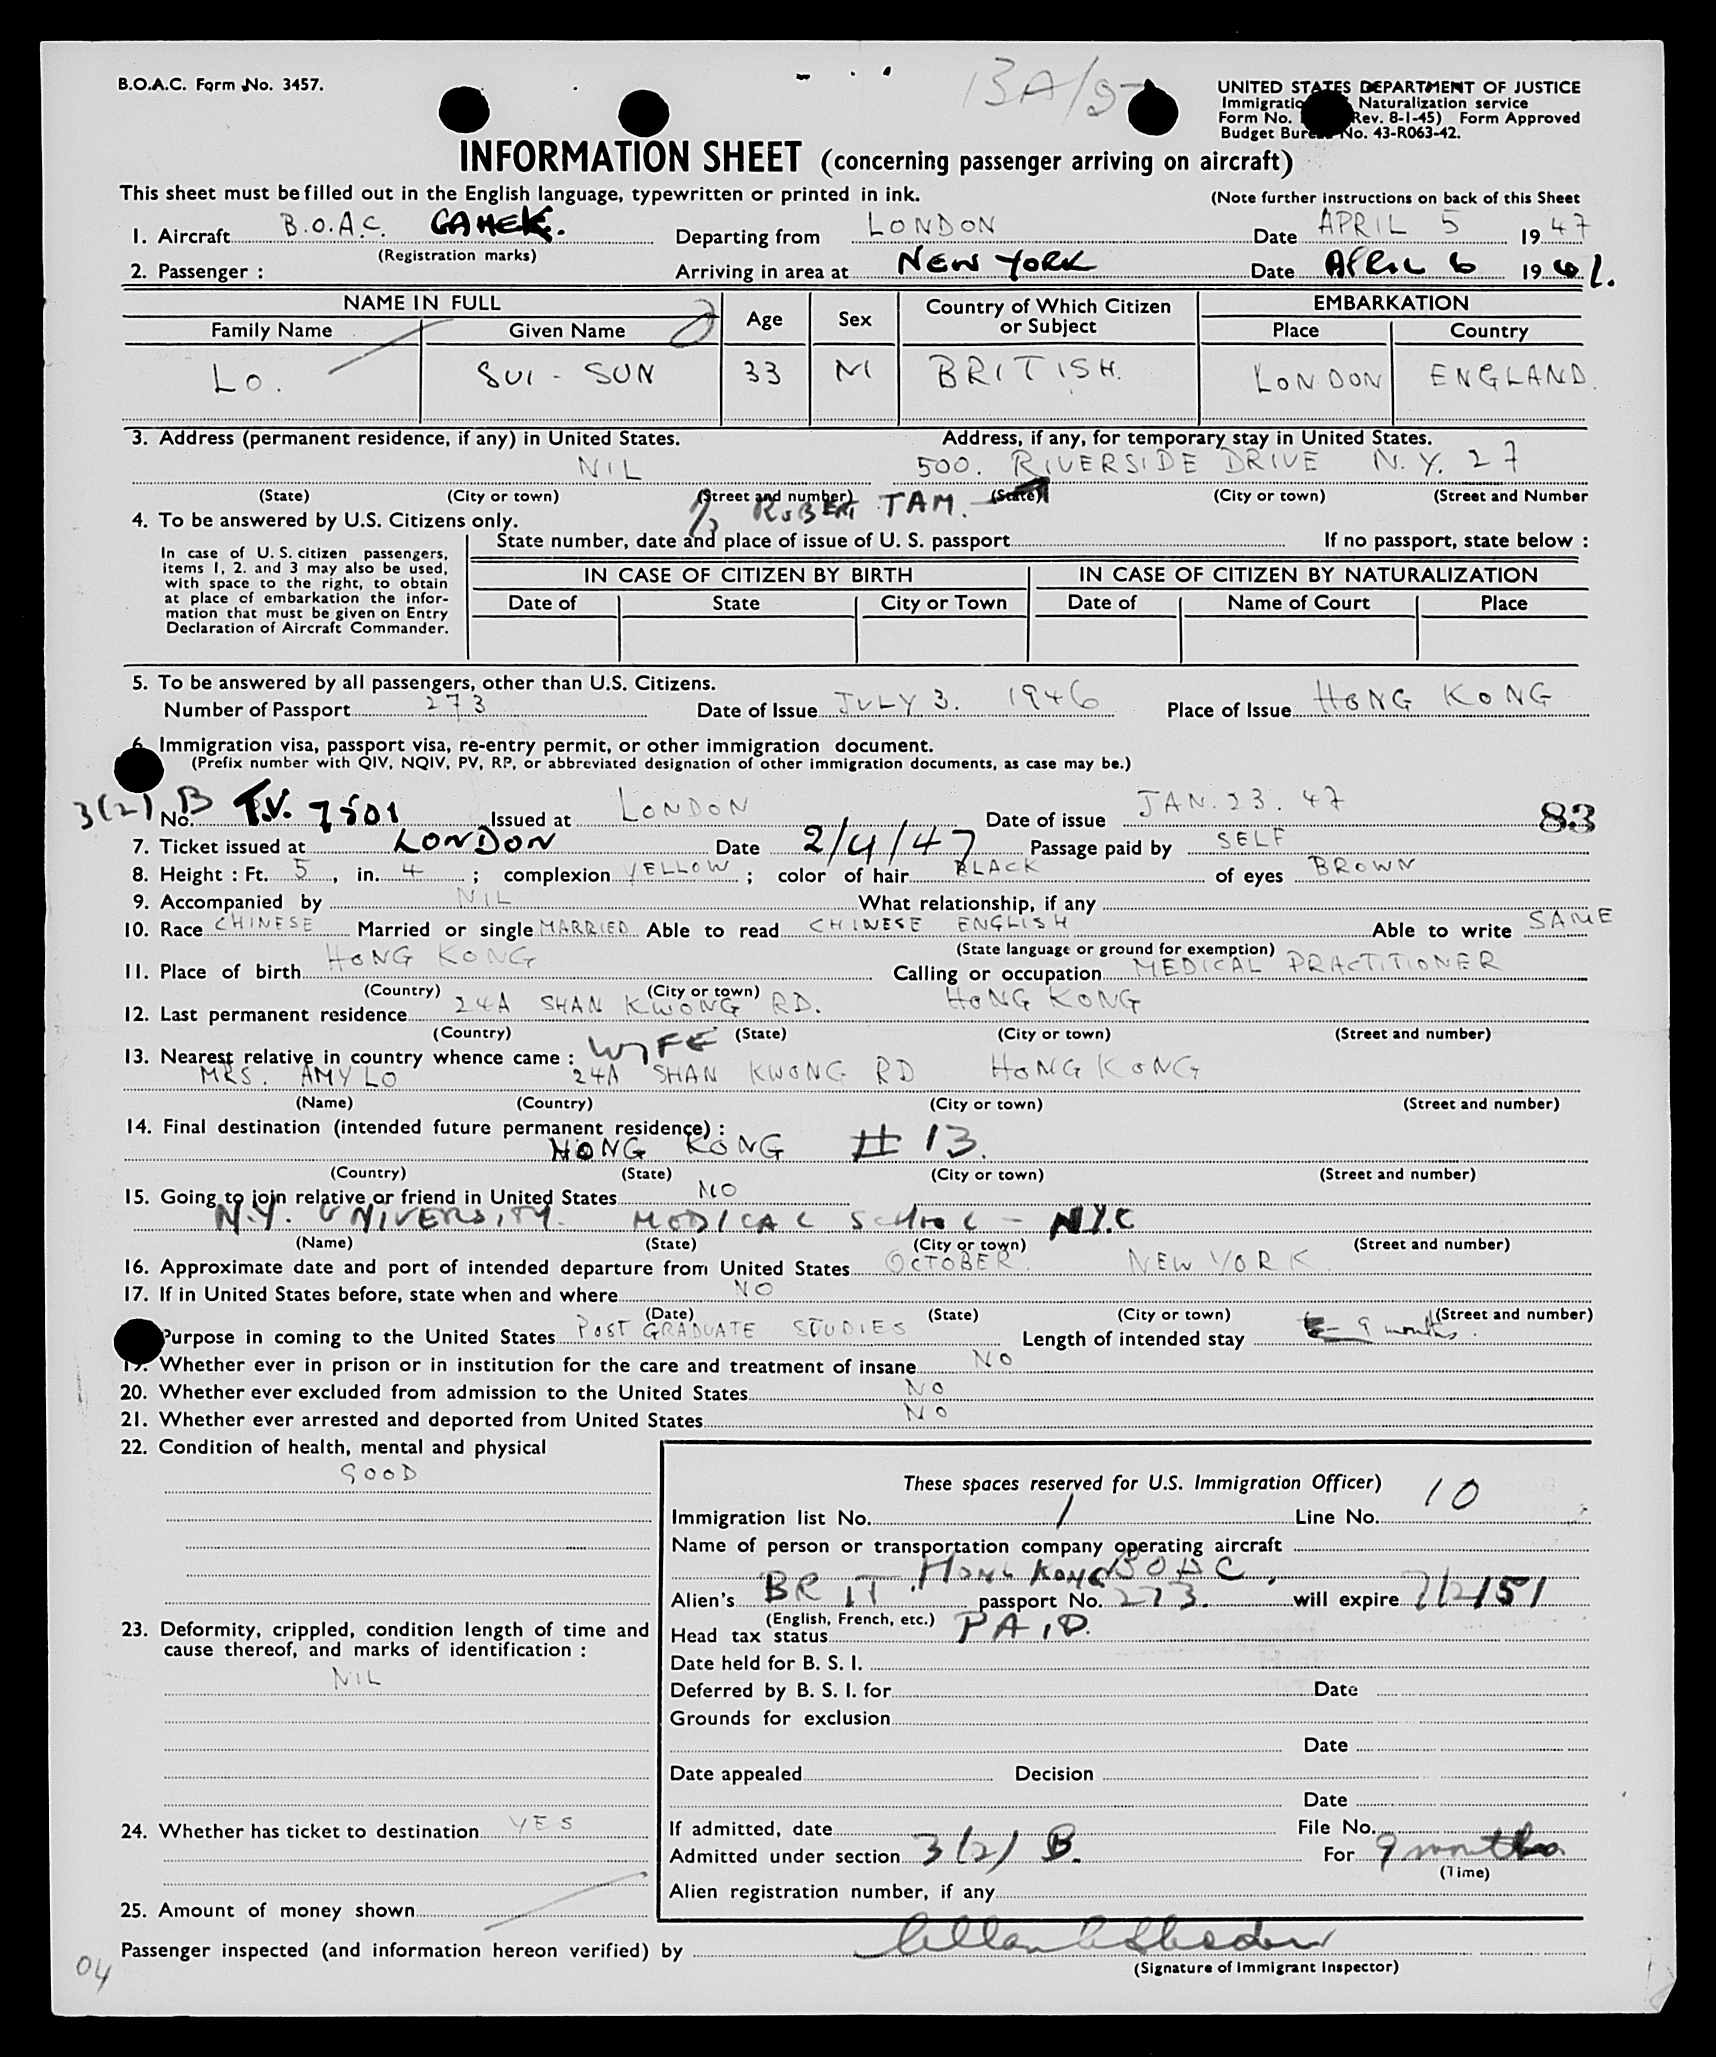 B.O.A.C. Form No. 3457.
13A/
UNITED STATES DEPARTMENT OF JUSTICE
Naturalization service
Form No. Rev. 8-1-45) Form Approved
Budget Bureau No. 43-R063-42.
INFORMATION SHEET (concerning passenger arriving on aircraft)
This sheet must be filled out in the English language, typewritten or printed in ink. (Note further instructions on back of this Sheet
1. Aircraft B.O.A.C. GAHEK. Departing from LONDON Date APRIL 5 1947
(Registration marks)
2. Passenger : Arriving in area at NEW YORK Date APRIL 6 19
NAME IN FULL Age Sex Country of Which Citizen or Subject EMBARKATION
Family Name Given Name Place Country
LO. SUI - SUN 33 M BRITISH. LONDON ENGLAND.
3. Address (permanent residence, if any) in United States. Address, if any, for temporary stay in United States.
NIL 500. RIVERSIDE DRIVE N.Y. 27
(State) (City or town) (Street and number) (State) (City or town) (Street and Number
ROBERT TAM.
4. To be answered by U.S. Citizens only.
State number, date and place of issue of U. S. passport If no passport, state below :
In case of U. S. citizen passengers,
items 1, 2. and 3 may also be used,
with space to the right, to obtain
at place of embarkation the infor-
mation that must be given on Entry
Declaration of Aircraft Commander.
IN CASE OF CITIZEN BY BIRTH IN CASE OF CITIZEN BY NATURALIZATION
Date of State City or Town Date of Name of Court Place
5. To be answered by all passengers, other than U.S. Citizens.
Number of Passport 273 Date of Issue JULY 3. 1946 Place of Issue HONG KONG
6. Immigration visa, passport visa, re-entry permit, or other immigration document.
(Prefix number with QIV, NQIV, PV, RP, or abbreviated designation of other immigration documents, as case may be.)
3(2) B No. T.V. 7501 Issued at LONDON Date of issue JAN. 23. 47 83
7. Ticket issued at LONDON Date 2/4/47 Passage paid by SELF
8. Height : Ft. 5, in. 4 ; complexion YELLOW ; color of hair BLACK of eyes BROWN
9. Accompanied by NIL What relationship, if any
10. Race CHINESE Married or single MARRIED Able to read CHINESE ENGLISH Able to write SAME
(State language or ground for exemption)
11. Place of birth HONG KONG Calling or occupation MEDICAL PRACTITIONER
(Country) (City or town)
12. Last permanent residence 24A SHAN KWONG RD. HONG KONG
(Country) (State) (City or town) (Street and number)
13. Nearest relative in country whence came : WIFE
MRS. AMY LO 24A SHAN KWONG RD HONG KONG
(Name) (Country) (City or town) (Street and number)
14. Final destination (intended future permanent residence) :
HONG KONG # 13.
(Country) (State) (City or town) (Street and number)
15. Going to join relative or friend in United States NO
N.Y. UNIVERSITY. MEDICAL SCHOOL - N.Y.C
(Name) (State) (City or town) (Street and number)
16. Approximate date and port of intended departure from United States OCTOBER. NEW YORK.
17. If in United States before, state when and where NO
(Date) (State) (City or town) (Street and number)
Purpose in coming to the United States POST GRADUATE STUDIES Length of intended stay 9 months.
19. Whether ever in prison or in institution for the care and treatment of insane NO
20. Whether ever excluded from admission to the United States NO
21. Whether ever arrested and deported from United States NO
22. Condition of health, mental and physical
GOOD
These spaces reserved for U.S. Immigration Officer)
Immigration list No. 1 Line No. 10
Name of person or transportation company operating aircraft
HONG KONG BOAC
Alien's BRIT. passport No. 273. will expire
(English, French, etc.)
Head tax status PAID.
Date held for B. S. I.
Deferred by B. S. I. for Date
Grounds for exclusion
Date
Date appealed Decision
Date
If admitted, date File No.
Admitted under section 3(2) B. For 9 months
(Time)
Alien registration number, if any
23. Deformity, crippled, condition length of time and
cause thereof, and marks of identification :
NIL
24. Whether has ticket to destination YES
25. Amount of money shown
Passenger inspected (and information hereon verified) by
(Signature of Immigrant Inspector)
04